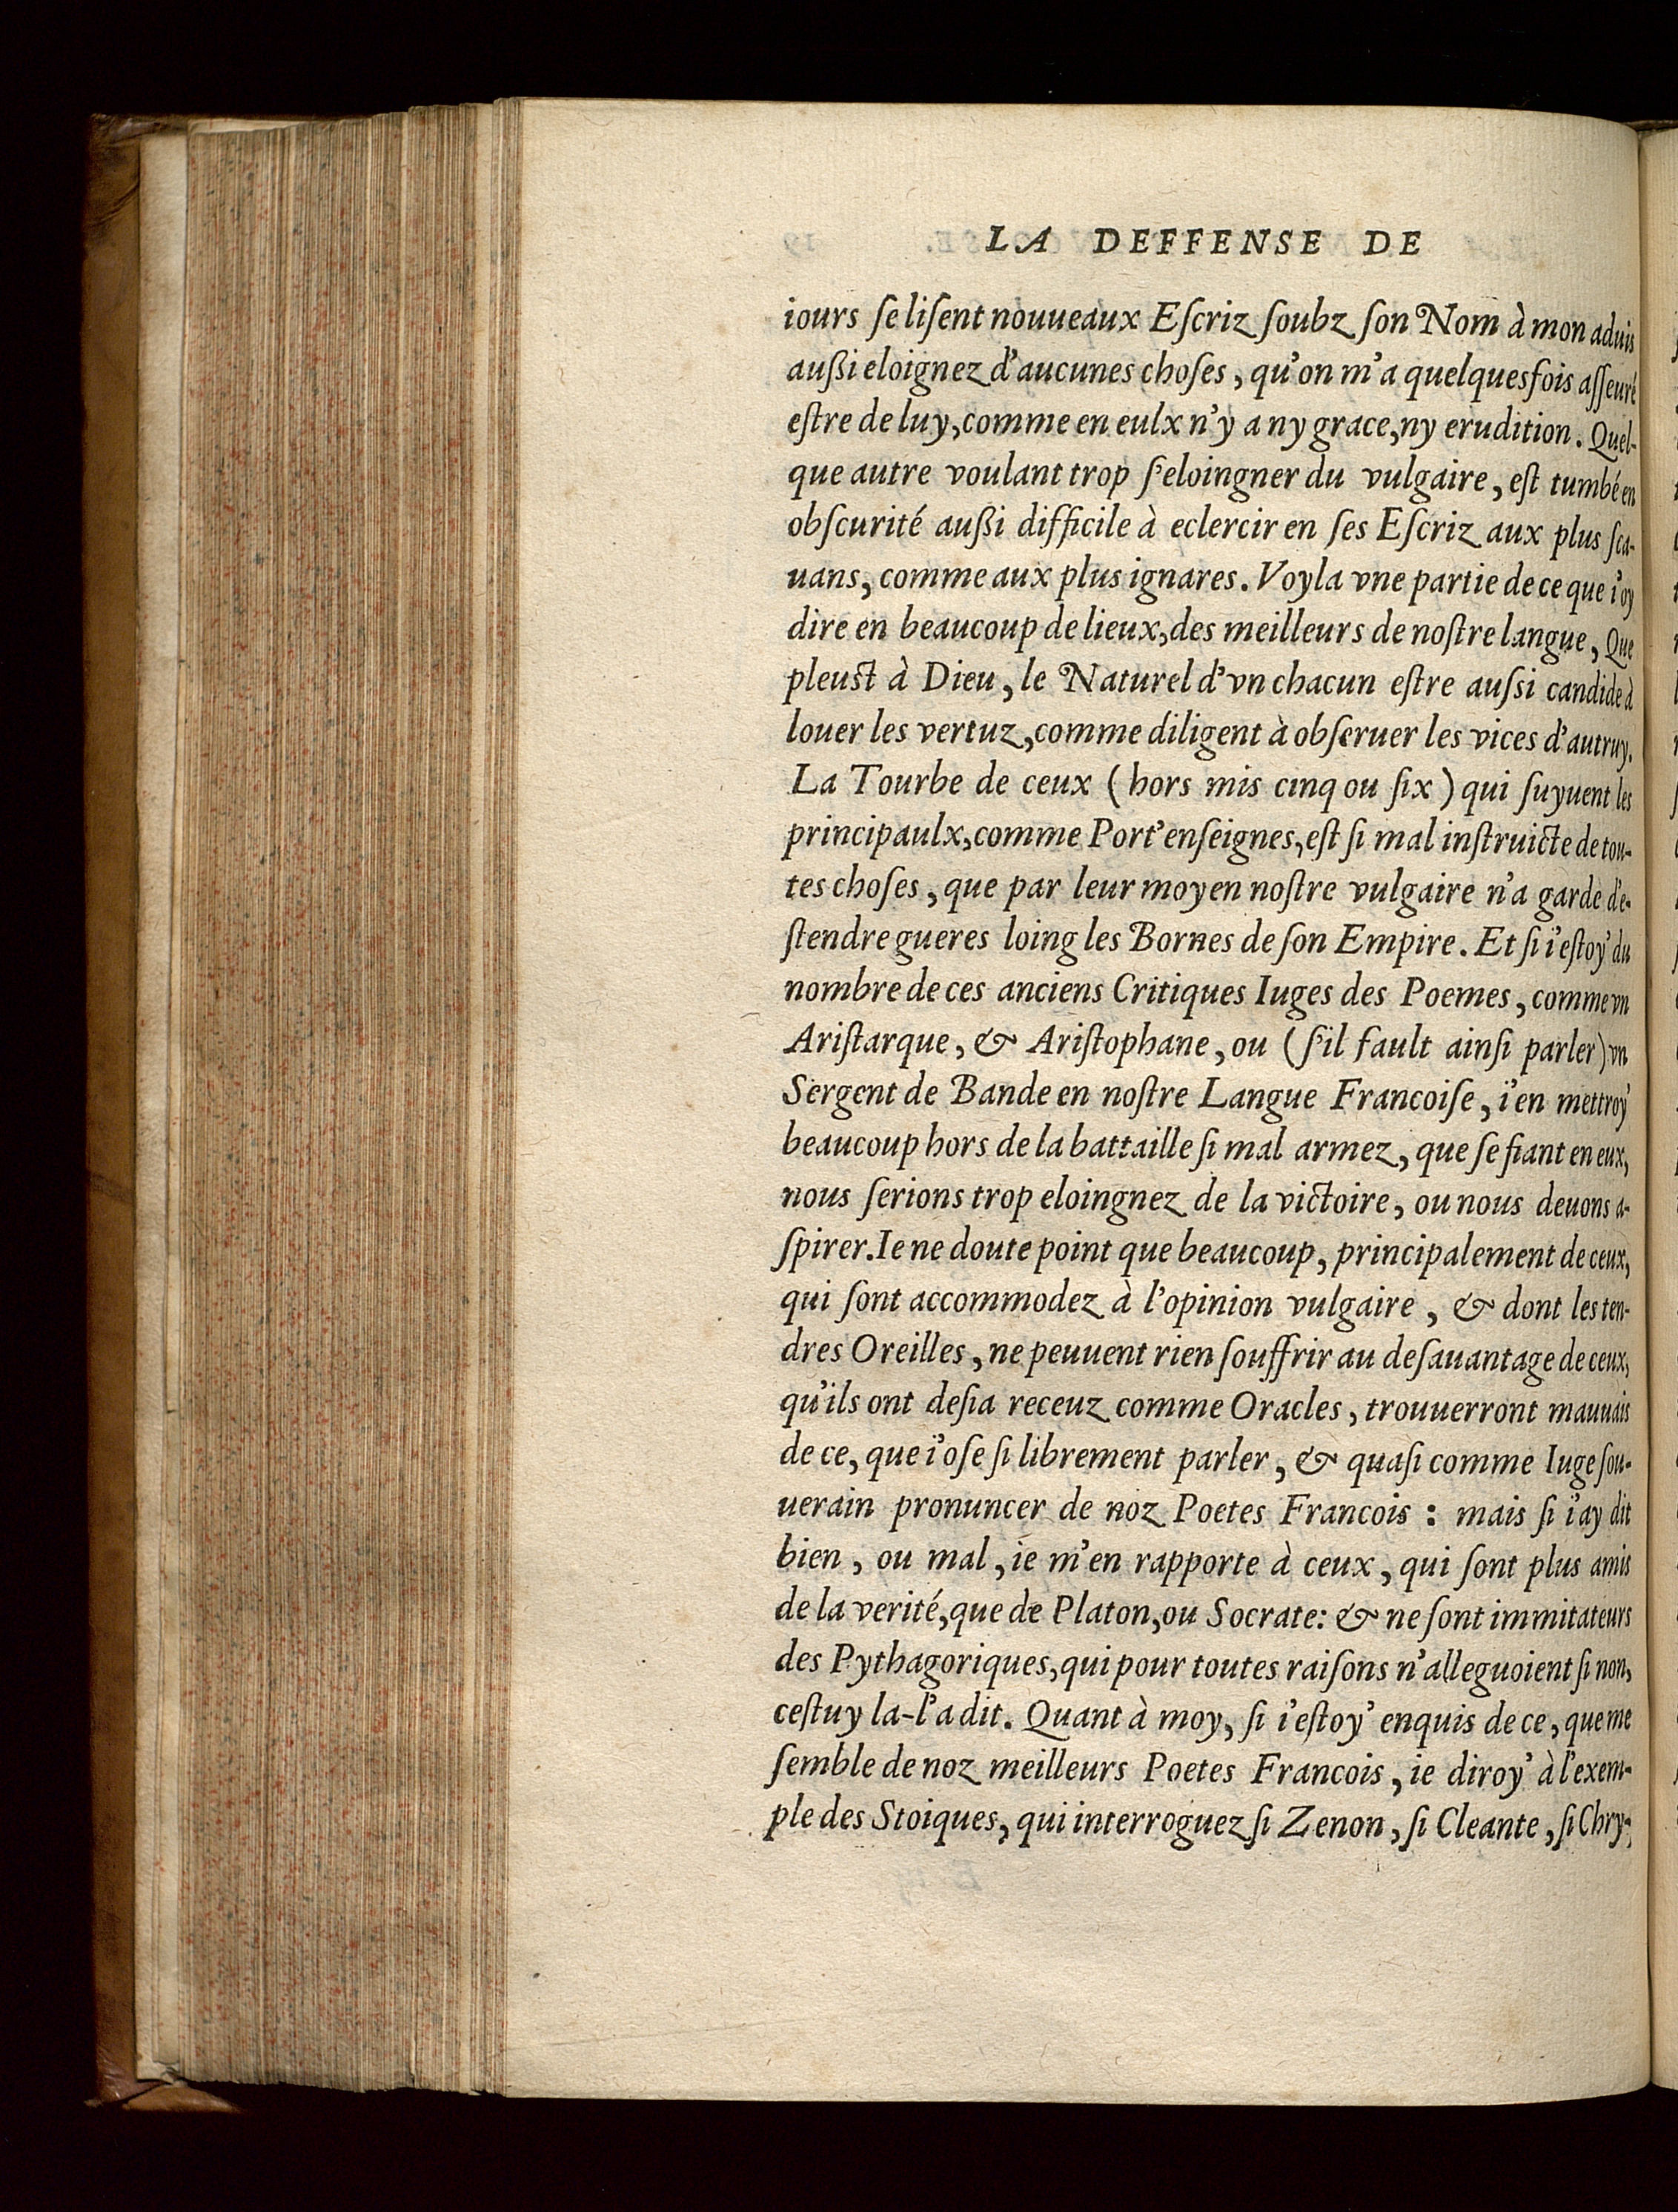 LA DEFFENSE DE
iours ſe liſent nouueaux Eſcriz ſoubz ſon Nom à mon aduis
außi eloignez d'aucunes choſes, qu'on m'a quelquesfois aſſeuré
eſtre de luy, comme en eulx n'y a ny grace, ny erudition. Quel-
que autre voulant trop ſ'eloingner du vulgaire, eſt tumbé en
obſcurité außi difficile à eclercir en ſes Eſcriz aux plus ſca-
uans, comme aux plus ignares. Voyla vne partie de ce que i'oy
dire en beaucoup de lieux, des meilleurs de noſtre langue, Que
pleust à Dieu, le Naturel d'vn chacun eſtre auſsi candide à
louer les vertuz, comme diligent à obſeruer les vices d'autruy.
La Tourbe de ceux (hors mis cinq ou ſix) qui ſuyuent les
principaulx, comme Port'enſeignes, eſt ſi mal inſtruicte de tou-
tes choſes, que par leur moyen noſtre vulgaire n'a garde d'e-
ſtendre gueres loing les Bornes de ſon Empire. Et ſi i'eſtoy' du
nombre de ces anciens Critiques Iuges des Poemes, comme vn
Ariſtarque, & Ariſtophane, ou (ſ'il fault ainſi parler) vn
Sergent de Bande en noſtre Langue Francoiſe, i'en mettroy'
beaucoup hors de la battaille ſi mal armez, que ſe fiant en eux,
nous ſerions trop eloingnez de la victoire, ou nous deuons a-
ſpirer. Ie ne doute point que beaucoup, principalement de ceux,
qui ſont accommodez à l'opinion vulgaire, & dont les ten-
dres Oreilles, ne peuuent rien ſouffrir au deſauantage de ceux,
qu'ils ont deſia receuz comme Oracles, trouuerront mauuais
de ce, que i'oſe ſi librement parler, & quaſi comme Iuge ſou-
uerain pronuncer de noz Poetes Francois : mais ſi i'ay dit
bien, ou mal, ie m'en rapporte à ceux, qui ſont plus amis
de la verité, que de Platon, ou Socrate: & ne ſont immitateurs
des Pythagoriques, qui pour toutes raiſons n'alleguoient ſi non,
ceſtuy la-l'a dit. Quant à moy, ſi i'eſtoy' enquis de ce, que me
ſemble de noz meilleurs Poetes Francois, ie diroy' à l'exem-
ple des Stoiques, qui interroguez ſi Zenon, ſi Cleante, ſi Chry-